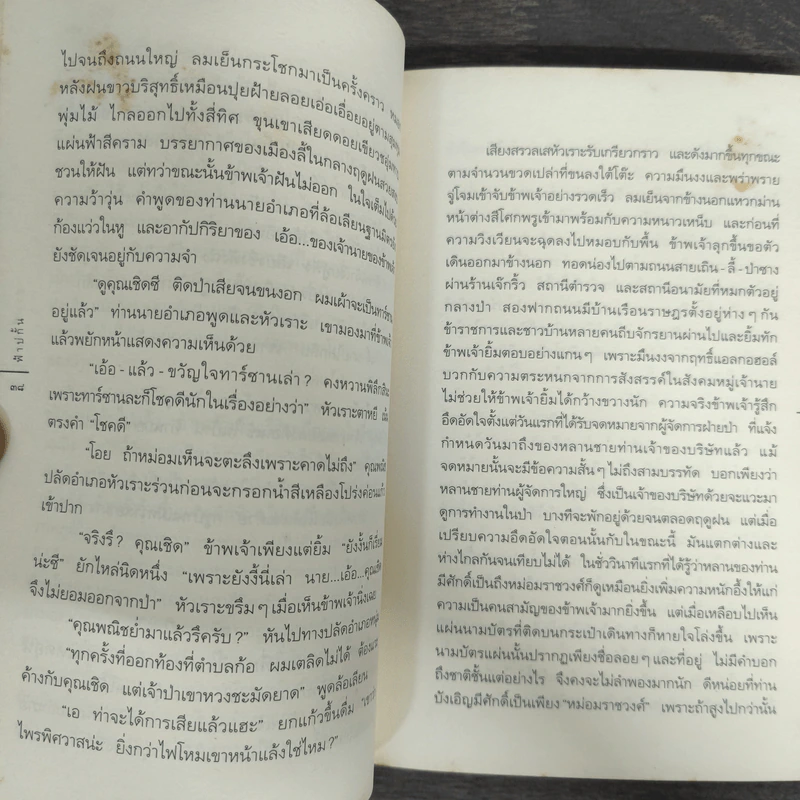 ไปจนถึงถนนใหญ่ ลมเย็นกระโชกมาเป็นครั้งคราว
หลังฝนขาวบริสุทธิ์เหมือนปุยฝ้ายลอยเอ่อเอื่อยอยู่ตาม
พุ่มไม้ ไกลออกไปทั้งสี่ทิศ ขุนเขาเสียดดอยเขียวชอุ่ม
แผ่นฟ้าสีคราม บรรยากาศของเมืองลี้ในกลางฤดูฝน
ชวนให้ฝัน แต่ทว่าขณะนั้นข้าพเจ้าฝันไม่ออก ในใจเต็มไปด้วย
ความว้าวุ่น คำพูดของท่านนายอำเภอที่ล้อเลียนฐานมิตร
ก้องแว่วในหู และอากัปกิริยาของ เอ้อ...ของเจ้านายของข้าพเจ้า
ยังชัดเจนอยู่กับความจำ
“ดูคุณเชิดซี ติดป่าเสียจนขนงอก ผมเผ้าจะเป็นทาร์ซาน
อยู่แล้ว” ท่านนายอำเภอพูดและหัวเราะ เขามองมาที่ข้าพเจ้า
แล้วพยักหน้าแสดงความเห็นด้วย
“เอ้อ - แล้ว - ขวัญใจทาร์ซานเล่า ? คงหวานพิลึกสินะ
เพราะทาร์ซานละก็โชคดีนักในเรื่องอย่างว่า” หัวเราะตาหยี เน้น
ตรงคำ “โชคดี”
“โอย ถ้าหม่อมเห็นจะตะลึงเพราะคาดไม่ถึง” คุณพณิช
ปลัดอำเภอหัวเราะร่วนก่อนจะกรอกน้ำสีเหลืองโปร่งค่อนแก้ว
เข้าปาก
“จริงรึ ? คุณเชิด” ข้าพเจ้าเพียงแต่ยิ้ม “ยังงั้นก็เรียก
น่ะซี” ยักไหล่นิดหนึ่ง “เพราะยังงี้นี่เล่า นาย...เอ้อ...คุณเชิด
จึงไม่ยอมออกจากป่า” หัวเราะขรึม ๆ เมื่อเห็นข้าพเจ้านิ่งเฉย
“คุณพณิชย่ำมาแล้วรึครับ ?” หันไปทางปลัดอำเภอ
“ทุกครั้งที่ออกท้องที่ตำบลก้อ ผมเตลิดไม่ได้ ต้องแวะ
ค้างกับคุณเชิด แต่เจ้าป่าเขาหวงชะมัดยาด” พูดล้อเลียน
“เอ ท่าจะได้การเสียแล้วแฮะ” ยกแก้วขึ้นดื่ม
ไพรพิศวาสน่ะ ยิ่งกว่าไฟโหมเขาหน้าแล้งใช่ไหม ?”
ฟ้าปกั้น
๓๘
เสียงสรวลเสหัวเราะรับเกรียวกราว และดังมากขึ้นทุกขณะ
ตามจำนวนขวดเปล่าที่ขนลงใต้โต๊ะ ความมึนงงและพร่าพราย
จู่โจมเข้าจับข้าพเจ้าอย่างรวดเร็ว ลมเย็นจากข้างนอกแหวกม่าน
หน้าต่างสีโศกพรูเข้ามาพร้อมกับความหนาวเหน็บ และก่อนที่
ความวิงเวียนจะฉุดลงไปหมอบกับพื้น ข้าพเจ้าลุกขึ้นขอตัว
เดินออกมาข้างนอก ทอดน่องไปตามถนนสายเถิน - ลี้ - ป่าซาง
ผ่านร้านเจ๊กริ้ว สถานีตำรวจ และสถานีอนามัยที่หมกตัวอยู่
กลางป่า สองฟากถนนมีบ้านเรือนราษฎรตั้งอยู่ห่าง ๆ กัน
ข้าราชการและชาวบ้านหลายคนถีบจักรยานผ่านไปและยิ้มทัก
ข้าพเจ้ายิ้มตอบอย่างแกน ๆ เพราะมึนงงจากฤทธิ์แอลกอฮอล์
บวกกับความตระหนกจากการสังสรรค์ในสังคมหมู่เจ้านาย
ไม่ช่วยให้ข้าพเจ้ายิ้มได้กว้างขวางนัก ความจริงข้าพเจ้ารู้สึก
อึดอัดใจตั้งแต่วันแรกที่ได้รับจดหมายจากผู้จัดการฝ่ายป่า ที่แจ้ง
กำหนดวันมาถึงของหลานชายท่านเจ้าของบริษัทแล้ว แม้
จดหมายนั้นจะมีข้อความสั้น ๆ ไม่ถึงสามบรรทัด บอกเพียงว่า
หลานชายท่านผู้จัดการใหญ่ ซึ่งเป็นเจ้าของบริษัทด้วยจะแวะมา
ดูการทำงานในป่า บางทีจะพักอยู่ด้วยจนตลอดฤดูฝน แต่เมื่อ
เปรียบความอึดอัดใจตอนนั้นกับในขณะนี้ มันแตกต่างและ
ห่างไกลกันจนเทียบไม่ได้ ในชั่ววินาทีแรกที่ได้รู้ว่าหลานของท่าน
มีศักดิ์เป็นถึงหม่อมราชวงศ์ก็ดูเหมือนยิ่งเพิ่มความหนักอึ้งให้แก่
ความเป็นคนสามัญของข้าพเจ้ามากยิ่งขึ้น แต่เมื่อเหลือบไปเห็น
แผ่นนามบัตรที่ติดบนกระเป๋าเดินทางก็หายใจโล่งขึ้น เพราะ
นามบัตรแผ่นนั้นปรากฏเพียงชื่อลอย ๆ และที่อยู่ ไม่มีคำบอก
ถึงชาติชั้นแต่อย่างไร จึงคงจะไม่ลำพองมากนัก ดีหน่อยที่ท่าน
บังเอิญมีศักดิ์เป็นเพียง “หม่อมราชวงศ์” เพราะถ้าสูงไปกว่านั้น